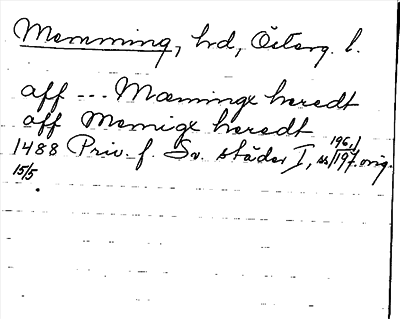 Memming, hrd, Österg. l.
aff --- Mæninge heredt
aff Memige heredt
1488 Priv. f. Sv. städer I, ss 196, 197. orig.
15/5